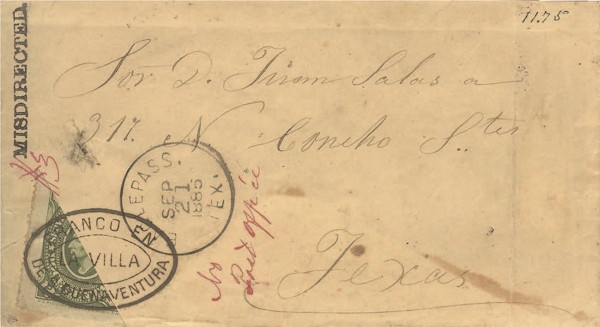 11.75
MISDIRECTED.
Sor D. Tirom Salas a
317. N Concho Stes
EAGLEPASS.
SEP
21
1885
TEX.
No
Post office
FRANCO EN
VILLA
DE S. BUENAVENTURA
Texas